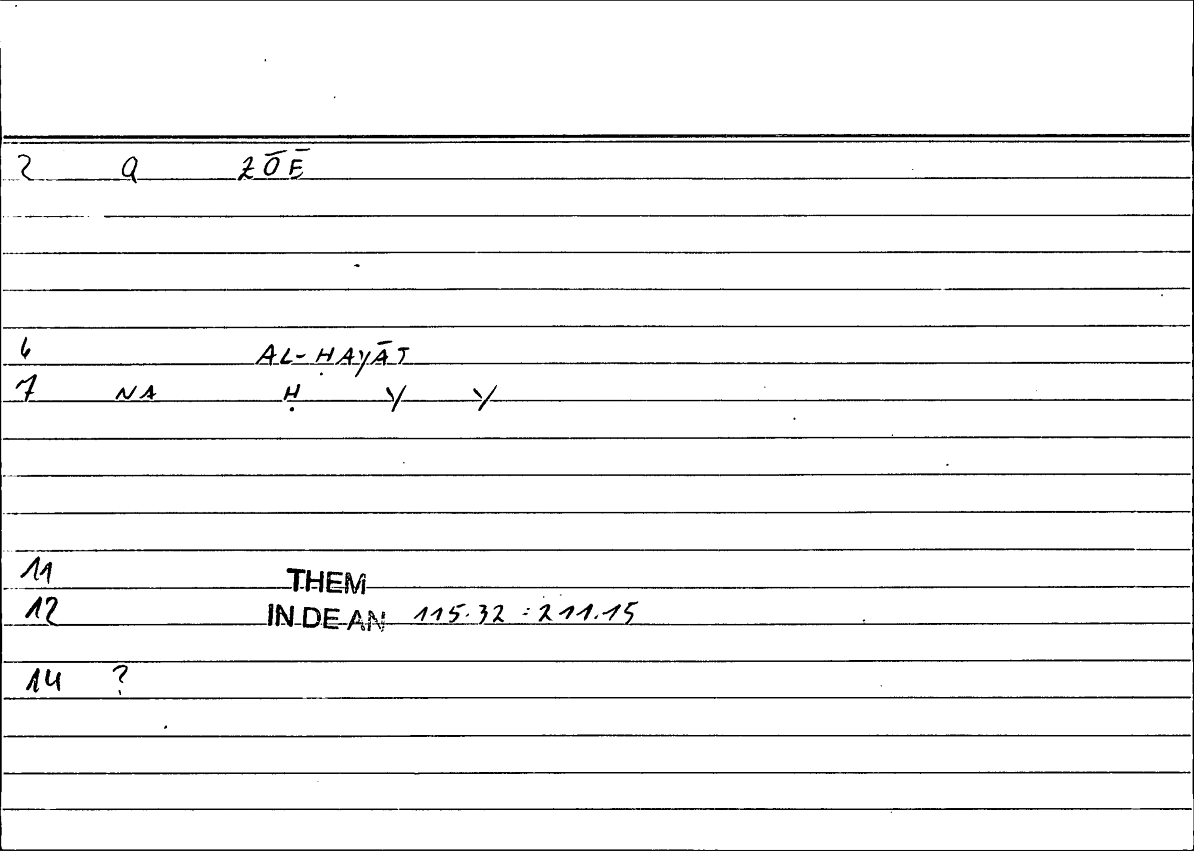 2 Q ZŌĒ
6 AL-ḤAYĀT
7 NA Ḥ Y Y
11 THEM
12 IN DE AN 115.32 : 211.15
14 ?